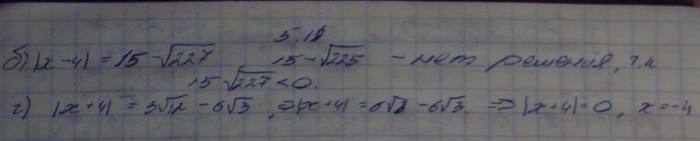 5.18
б) |x-4| = 15 - √227   15 - √225 - нет решения, т.к
15 - √227 < 0.
г) |x+4| = 3√12 - 6√3, ⇒ |x+4| = 6√3 - 6√3. ⇒ |x+4| = 0, x = -4